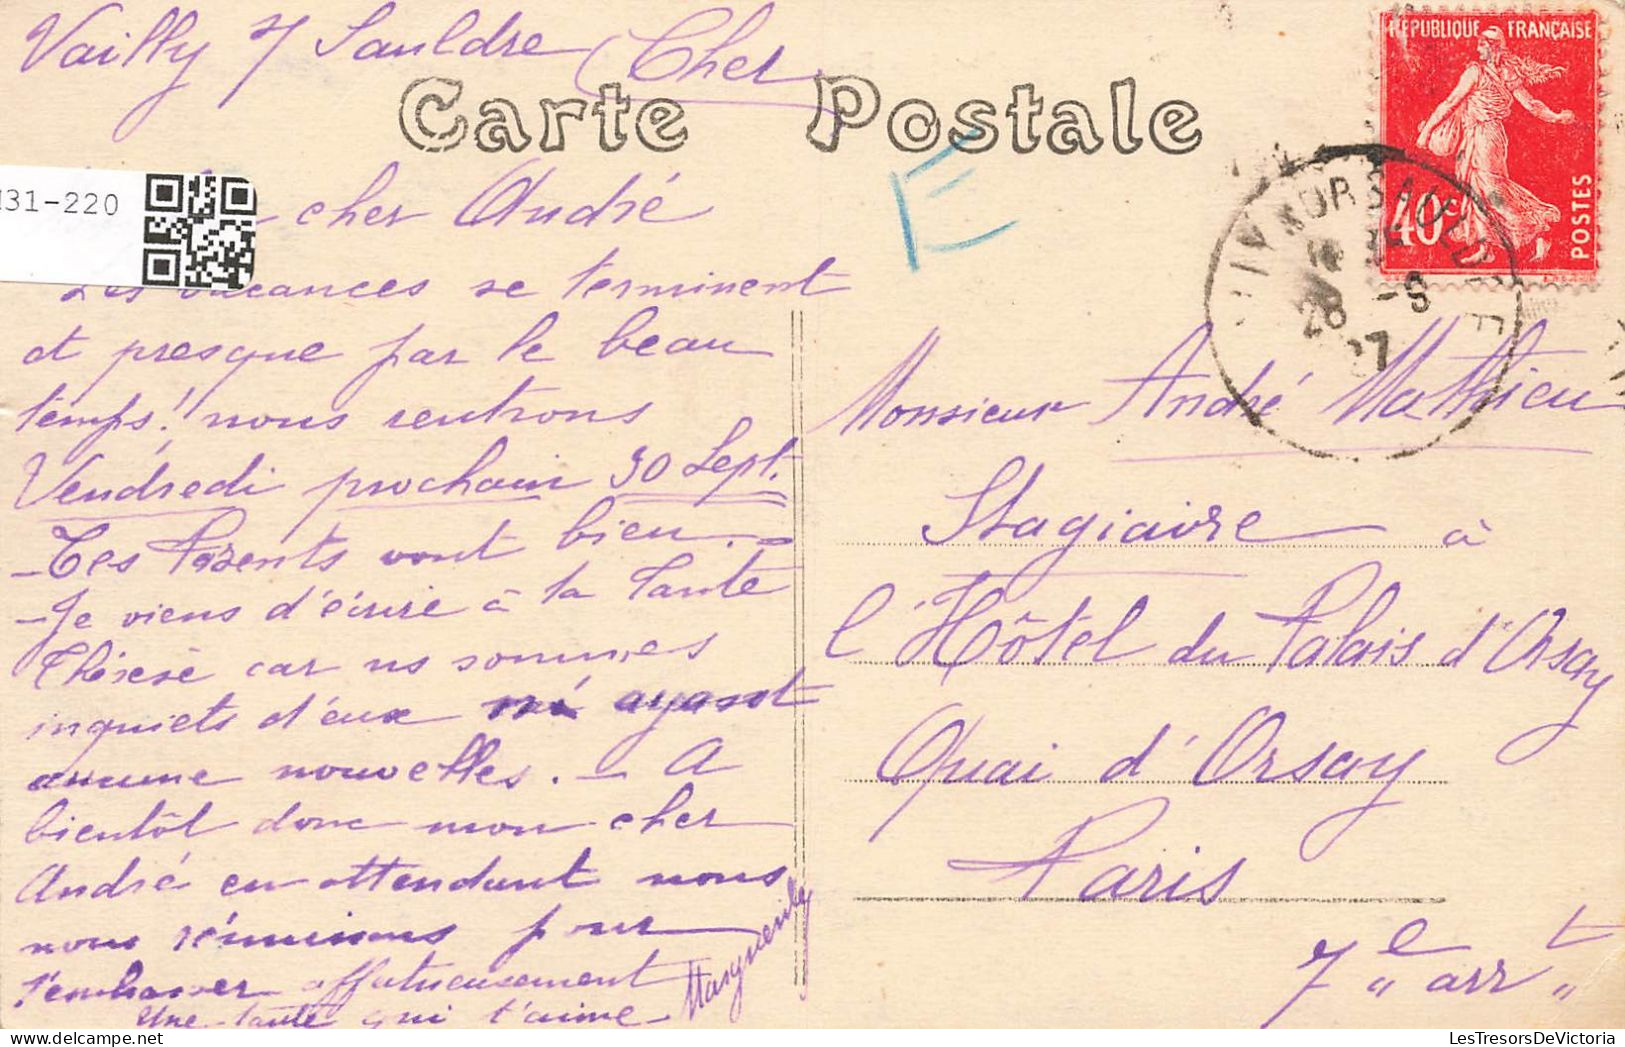 Vailly s/ Sauldre (Cher)
Carte Postale
REPUBLIQUE FRANÇAISE
40c
POSTES
31-220
cher André
Les vacances se terminent
et presque par le beau
temps! nous rentrons
Vendredi prochain 30 Sept.
- Tes Parents vont bien. -
- Je viens d'écrire à ta Tante
Thérèse car ns sommes
inquiets d'eux ayant
aucune nouvelles. - A
bientôt donc mon cher
André en attendant nous
nous réunissons pour
t'embrasser affectueusement
Une Tante qui t'aime
E
VAILLY SUR SAULDRE
28 -9
27
Monsieur André Mathieu
Stagiaire à
l'Hôtel du Palais d'Orsay
Quai d'Orsay
Paris
7e arrt
LesTresorsDeVictoria